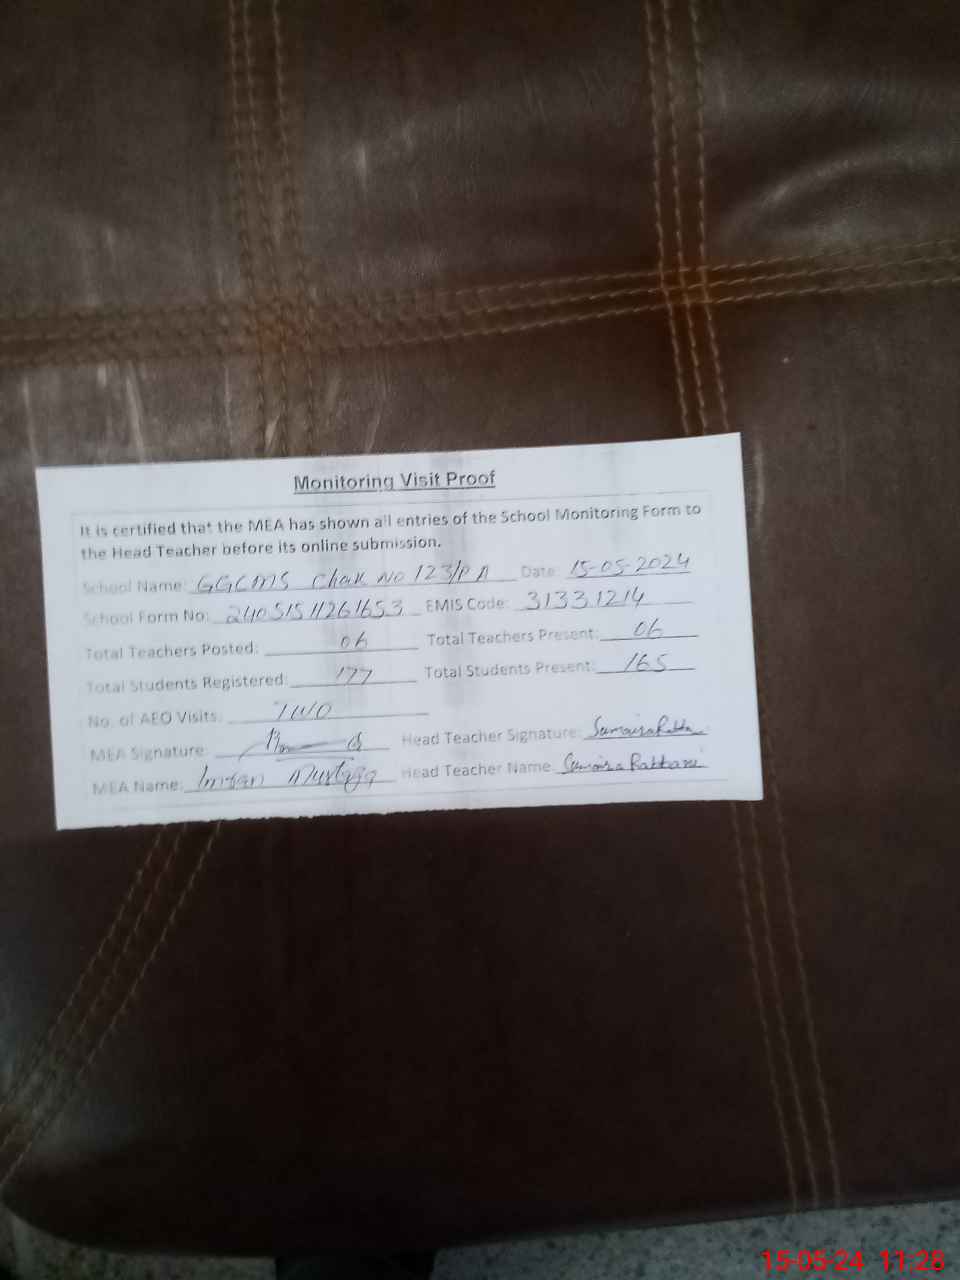 Monitoring Visit Proof
It is certified that the MEA has shown all entries of the School Monitoring Form to
the Head Teacher before its online submission.
School Name: GGCMS Chak No 123/P A Date: 15-05-2024
School Form No: 240515 11261653 EMIS Code: 31331214
Total Teachers Posted: 06 Total Teachers Present: 06
Total Students Registered: 177 Total Students Present: 165
No. of AEO Visits: TWO
MEA Signature: Head Teacher Signature: Sumaira
MEA Name: Imran Murtaza Head Teacher Name: Sumaira Rabbani
15-05-24 11:28